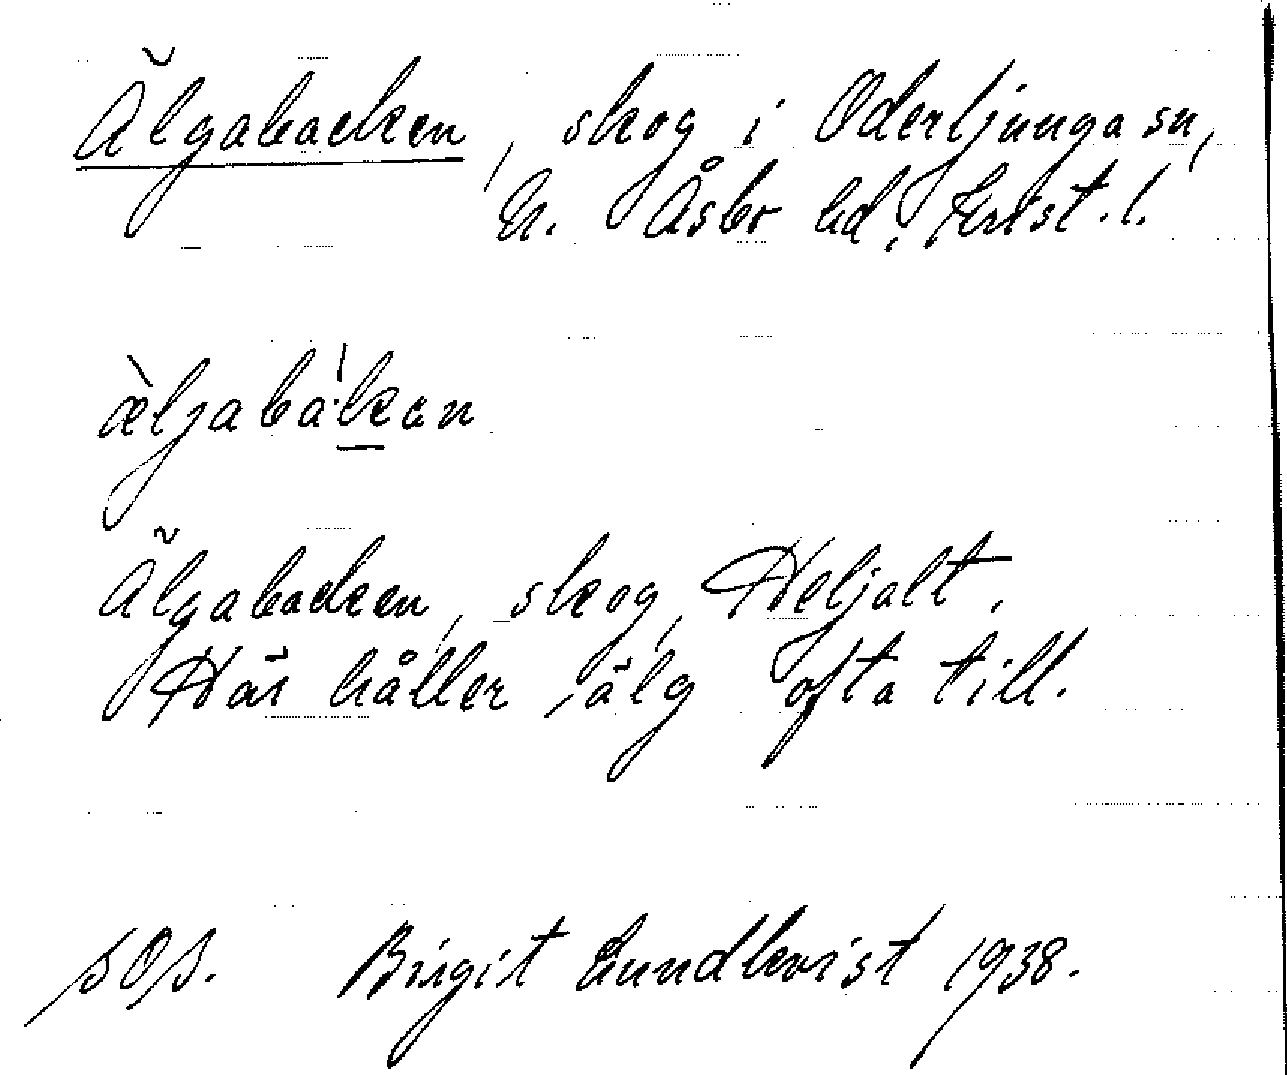 Älgabacken, skog i Oderljunga sn,
N. Åsbo hd, Krist. l.
æ̀ljabàkan
Älgabacken, skog, Heljalt.
Här håller älg ofta till.
SOS. Birgit Lundkvist 1938.